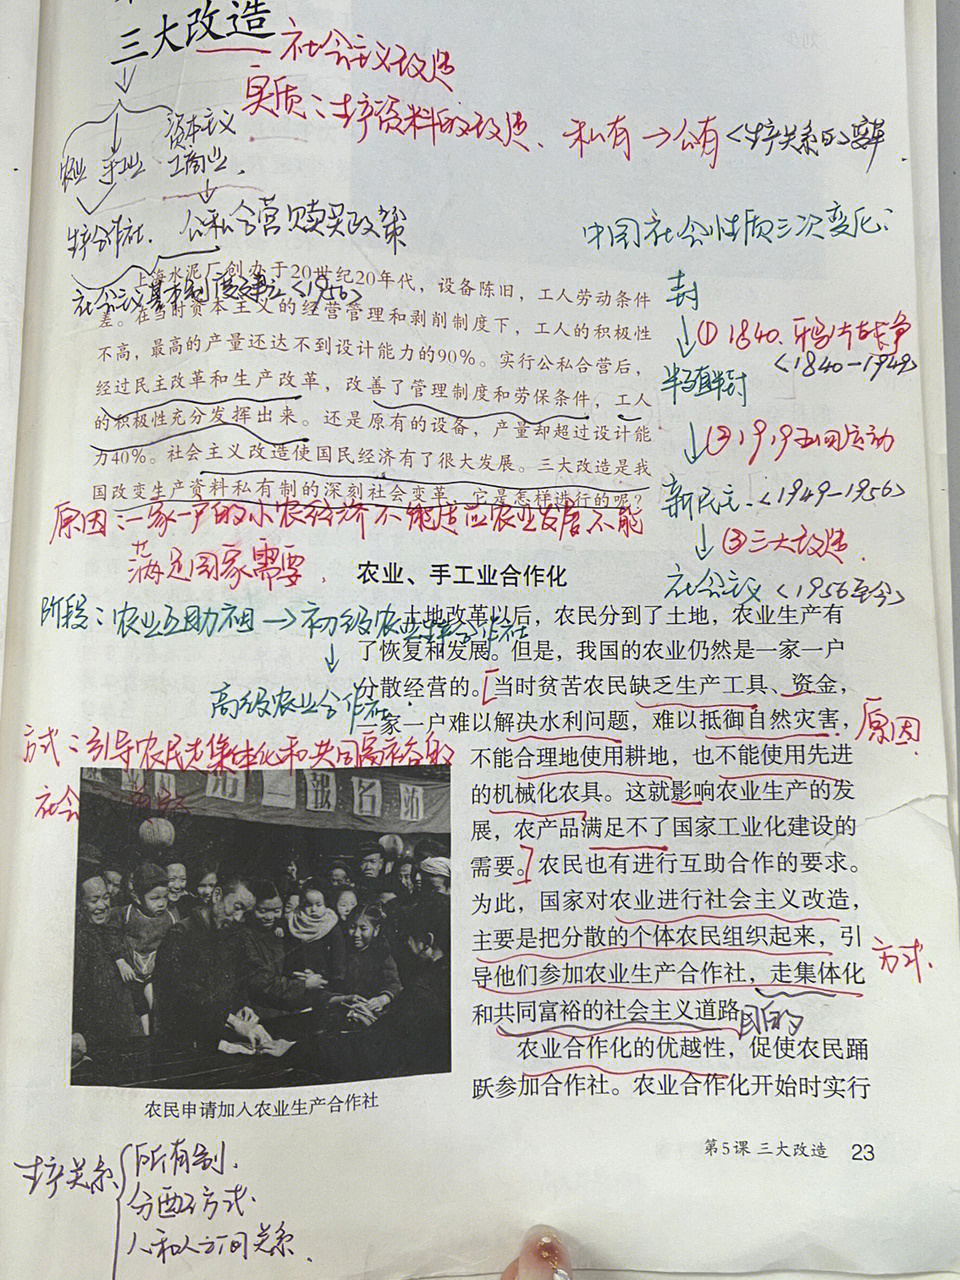 三大改造
社会主义改造
实质：生产资料的改造、私有→公有<生产关系的变革
农业 手工业 资本主义
工商业.
生产合作社. 公私合营 赎买政策
社会主义基本制度建立<1956>
中国社会性质三次变化：
封
↓① 1840.鸦片战争
<1840-1949>
半殖半封
↓② 1919五四运动
新民主.<1949-1956>
↓③三大改造.
社会主义<1956至今>
上海水泥厂创办于20世纪20年代，设备陈旧，工人劳动条件
差。在当时资本主义的经营管理和剥削制度下，工人的积极性
不高，最高的产量还达不到设计能力的90%。实行公私合营后，
经过民主改革和生产改革，改善了管理制度和劳保条件，工人
的积极性充分发挥出来。还是原有的设备，产量却超过设计能
力40%。社会主义改造使国民经济有了很大发展。三大改造是我
国改变生产资料私有制的深刻社会变革，它是怎样进行的呢？
原因：一家一户的小农经济不能适应农业发展不能
满足国家需要.
农业、手工业合作化
阶段：农业互助组→初级农业生产合作社
↓
高级农业合作社
方式：引导农民走集体化和共同富裕的
社会
土地改革以后，农民分到了土地，农业生产有
了恢复和发展。但是，我国的农业仍然是一家一户
分散经营的。[当时贫苦农民缺乏生产工具、资金，
一家一户难以解决水利问题，难以抵御自然灾害，
原因
不能合理地使用耕地，也不能使用先进
的机械化农具。这就影响农业生产的发
展，农产品满足不了国家工业化建设的
需要。]农民也有进行互助合作的要求。
为此，国家对农业进行社会主义改造，
主要是把分散的个体农民组织起来，引
方式.
导他们参加农业生产合作社，走集体化
和共同富裕的社会主义道路
目的
农业合作化的优越性，促使农民踊
跃参加合作社。农业合作化开始时实行
第一
报名站
农民申请加入农业生产合作社
第5课 三大改造 23
生产关系{所有制.
分配方式.
人和人之间关系.